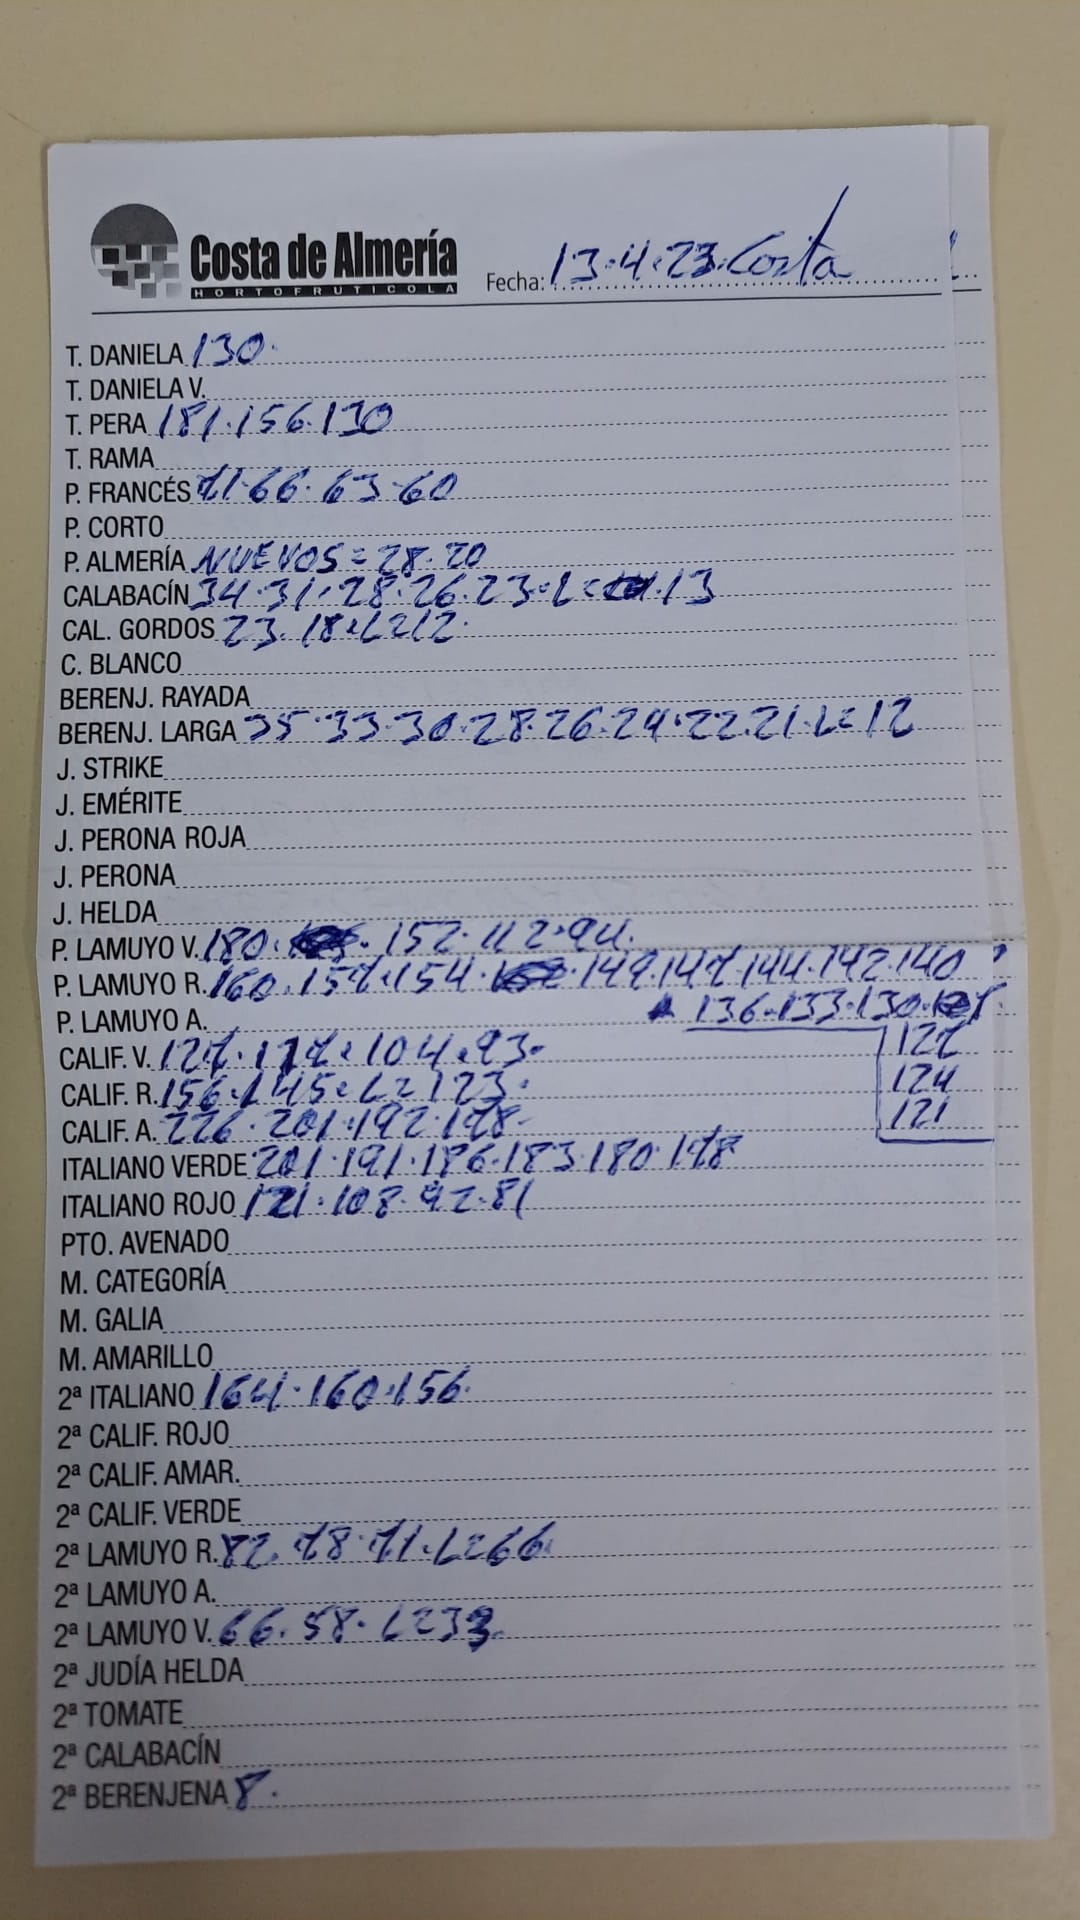 Costa de Almería
HORTOFRUTICOLA
Fecha: 13.4.23.Costa
T. DANIELA 130.
T. DANIELA V.
T. PERA 181.156.130
T. RAMA
P. FRANCÉS 71.66.63.60
P. CORTO
P. ALMERÍA NUEVOS = 28.20
CALABACÍN 34.31.28.26.23.L= 13
CAL. GORDOS 23.18.L=12.
C. BLANCO
BERENJ. RAYADA
BERENJ. LARGA 35.33.30.28.26.24.22.21.L=12
J. STRIKE
J. EMÉRITE
J. PERONA ROJA
J. PERONA
J. HELDA
P. LAMUYO V. 180. 152.112.94.
P. LAMUYO R. 160.157.154. 149.147.144.142.140
P. LAMUYO A. 136.133.130.
CALIF. V. 127.117.104.93. 127
CALIF. R. 156.145.L=123. 124
CALIF. A. 226.201.192.178. 121
ITALIANO VERDE 201.191.186.183.180.178
ITALIANO ROJO 121.108.92.81
PTO. AVENADO
M. CATEGORÍA
M. GALIA
M. AMARILLO
2ª ITALIANO 164.160.156.
2ª CALIF. ROJO
2ª CALIF. AMAR.
2ª CALIF. VERDE
2ª LAMUYO R. 82.78.71.L=66
2ª LAMUYO A.
2ª LAMUYO V. 66.58.L=33
2ª JUDÍA HELDA
2ª TOMATE
2ª CALABACÍN
2ª BERENJENA 8.